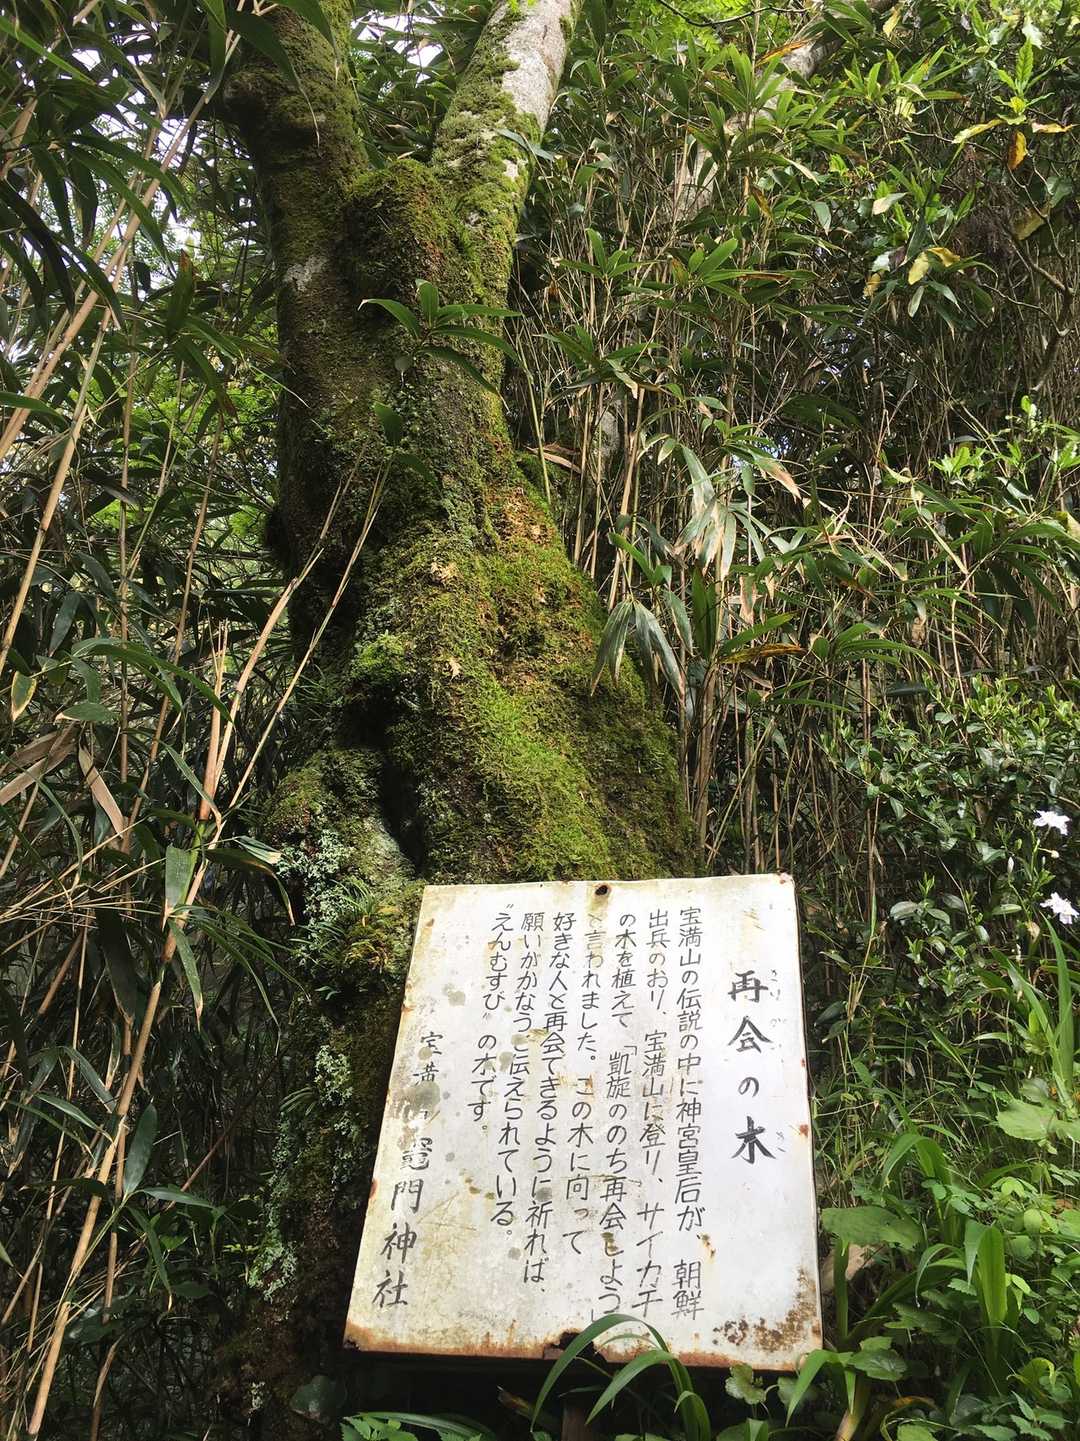 再会の木
さいかいのき
宝満山の伝説の中に神宮皇后が、朝鮮
出兵のおり、宝満山に登り、サイカチ
の木を植えて「凱旋ののち再会しよう」
と言われました。この木に向って
好きな人と再会できるように祈れば、
願いがかなうと伝えられている。
〝えんむすび〟の木です。
宝満 竈門神社